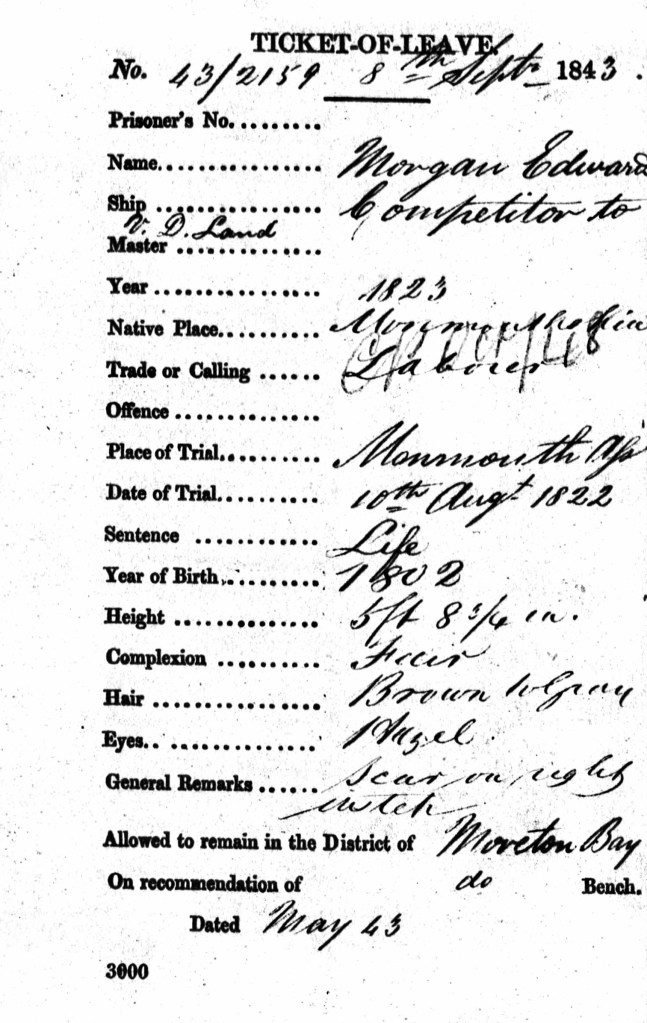 TICKET-OF-LEAVE.
No. 43/2159 8th Septr 1843.
Prisoner's No.........
Name................ Morgan Edward
Ship ................ Competitor to
V. D. Land
Master ..............
Year ................ 1823
Native Place.......... Monmouthshire
Trade or Calling ...... Labourer
Offence ..............
Place of Trial.......... Monmouth Ass
Date of Trial.......... 10th Augt 1822
Sentence ............ Life
Year of Birth.......... 1802
Height .............. 5ft 8 3/4 in.
Complexion .......... Fair
Hair ................ Brown to Gray
Eyes.. .............. Hazel
General Remarks ...... Scar on right
Allowed to remain in the District of Moreton Bay
On recommendation of do Bench.
Dated May 43
3000